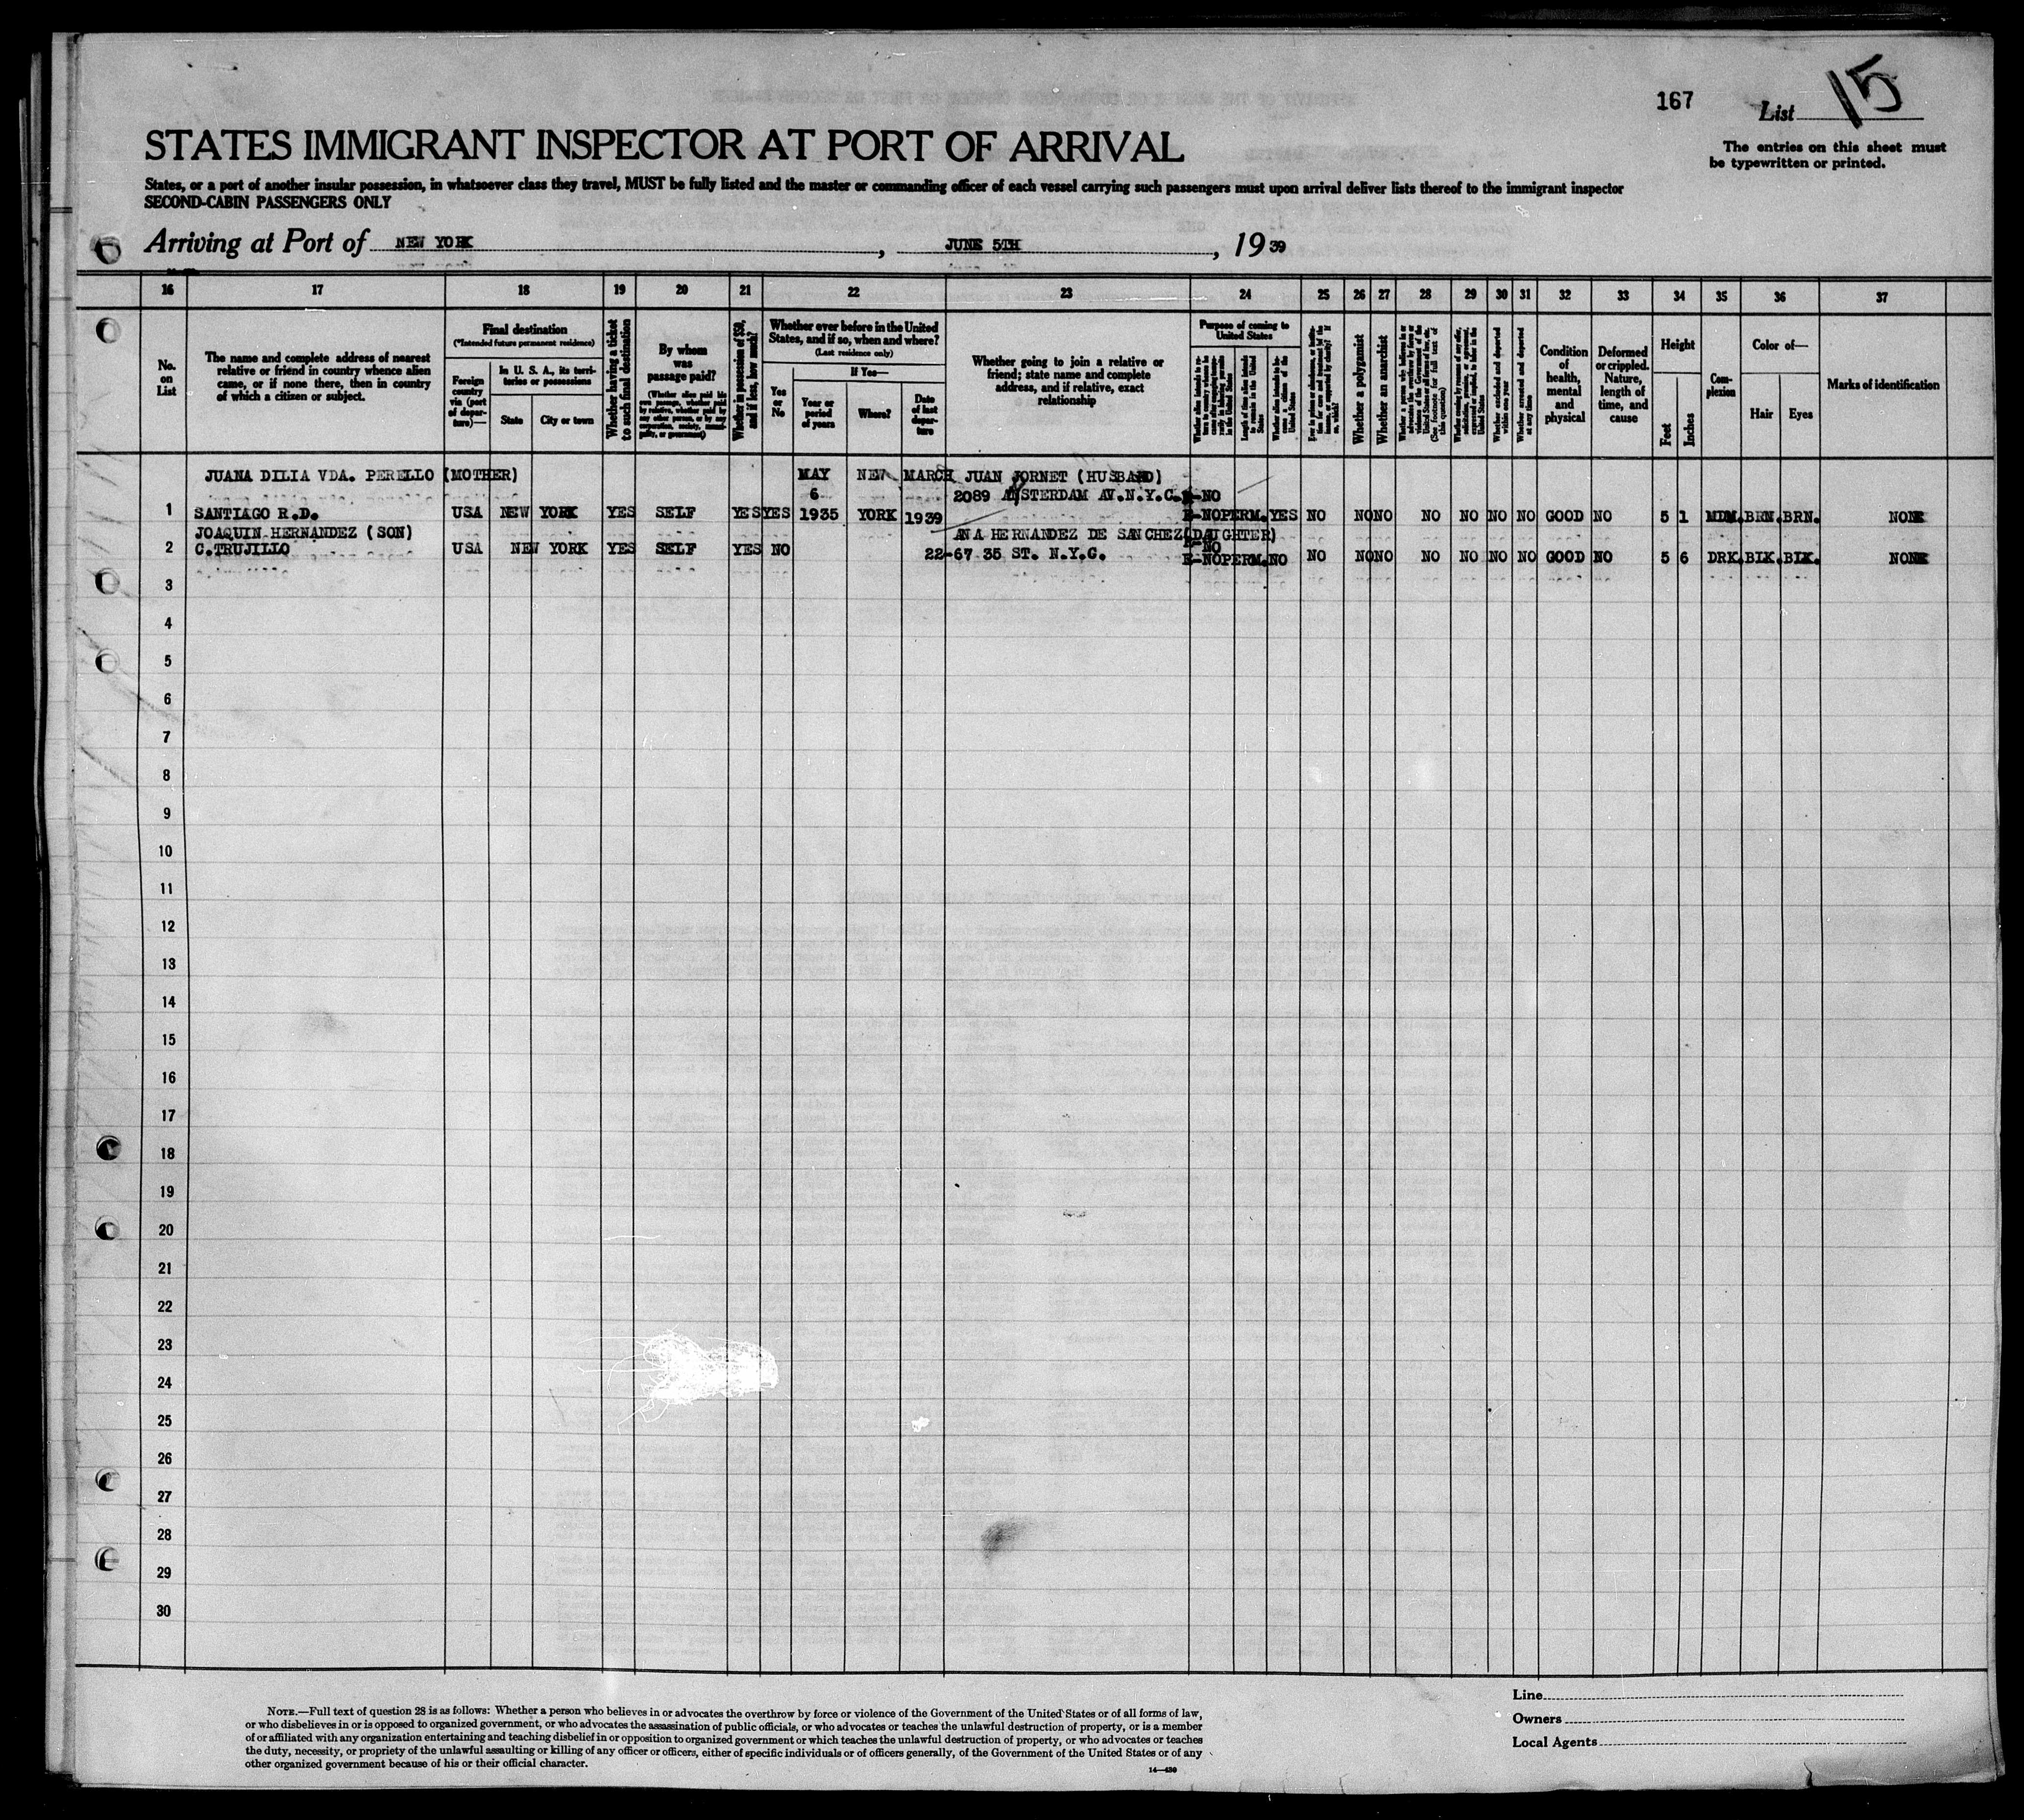 167
List 15
STATES IMMIGRANT INSPECTOR AT PORT OF ARRIVAL
The entries on this sheet must
be typewritten or printed.
States, or a port of another insular possession, in whatsoever class they travel, MUST be fully listed and the master or commanding officer of each vessel carrying such passengers must upon arrival deliver lists thereof to the immigrant inspector
SECOND-CABIN PASSENGERS ONLY
Arriving at Port of NEW YORK, JUNE 5TH, 19 39
16 17 18 19 20 21 22 23 24 25 26 27 28 29 30 31 32 33 34 35 36 37
No.
on
List
The name and complete address of nearest
relative or friend in country whence alien
came, or if none there, then in country
of which a citizen or subject.
Final destination
(*Intended future permanent residence)
Foreign
country
via (port
of depar-
ture)—
In U. S. A., its terri-
tories or possessions
State
City or town
Whether having a ticket
to such final destination
By whom
was
passage paid?
(Whether alien paid his
own passage, whether paid
by relative, whether paid by
any other person, or by any
corporation, society, munici-
pality, or government)
Whether in possession of $50,
and if less, how much?
Whether ever before in the United
States, and if so, when and where?
(Last residence only)
Yes
or
No
If Yes—
Year or
period
of years
Where?
Date
of last
depar-
ture
Whether going to join a relative or
friend; state name and complete
address, and if relative, exact
relationship
Purpose of coming to
United States
Length of time alien intends
to remain in the United
States
Whether alien intends to be-
come a citizen of the
United States
Whether a polygamist
Whether an anarchist
Whether arrested and deported
within one year
Whether arrested and deported
at any time
Condition
of
health,
mental
and
physical
Deformed
or crippled.
Nature,
length of
time, and
cause
Height
Feet
Inches
Com-
plexion
Color of—
Hair
Eyes
Marks of identification
JUANA DILIA VDA. PERELLO (MOTHER) MAY NEW MARCH JUAN JORNET (HUSBAND)
6 2089 AMSTERDAM AV.N.Y.C. NO
1 SANTIAGO R.D. USA NEW YORK YES SELF YES YES 1935 YORK 1939 NO PERM. YES NO NO NO NO NO NO NO GOOD NO 5 1 MDM. BRN. BRN. NONE
JOAQUIN HERNANDEZ (SON) ANA HERNANDEZ DE SANCHEZ (DAUGHTER)
NO
2 C.TRUJILLO USA NEW YORK YES SELF YES NO 22-67 35 ST. N.Y.C. NO PERM. NO NO NO NO NO NO NO NO GOOD NO 5 6 DRK. BLK. BLK. NONE
3
4
5
6
7
8
9
10
11
12
13
14
15
16
17
18
19
20
21
22
23
24
25
26
27
28
29
30
NOTE.—Full text of question 28 is as follows: Whether a person who believes in or advocates the overthrow by force or violence of the Government of the United States or of all forms of law,
or who disbelieves in or is opposed to organized government, or who advocates the assassination of public officials, or who advocates or teaches the unlawful destruction of property, or is a member
of or affiliated with any organization entertaining and teaching disbelief in or opposition to organized government or which teaches the unlawful destruction of property, or who advocates or teaches
the duty, necessity, or propriety of the unlawful assaulting or killing of any officer or officers, either of specific individuals or of officers generally, of the Government of the United States or of any
other organized government because of his or their official character.
14—430
Line
Owners
Local Agents